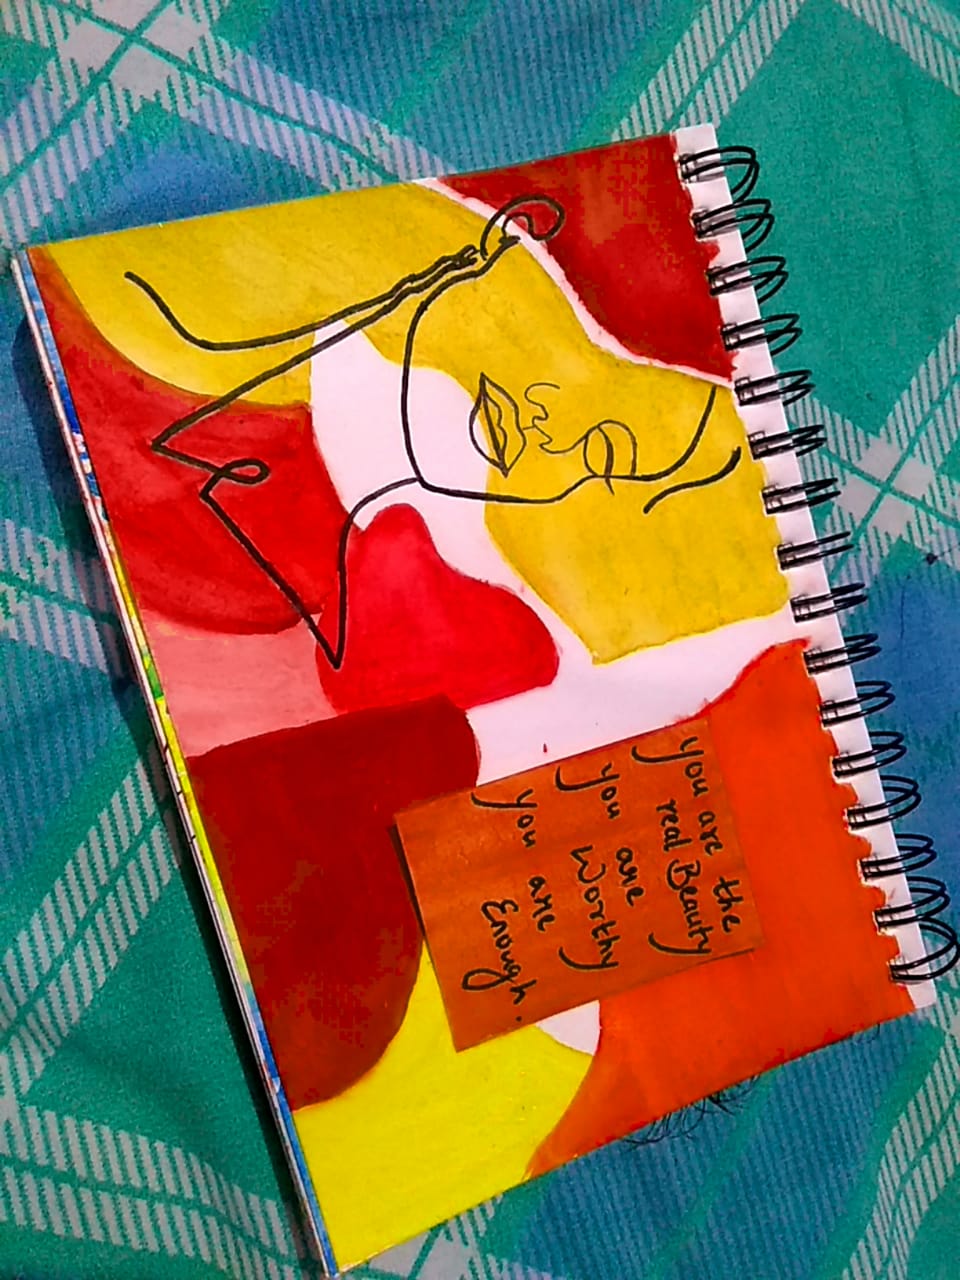 You are the
real Beauty
You are
Worthy
You are
Enough.